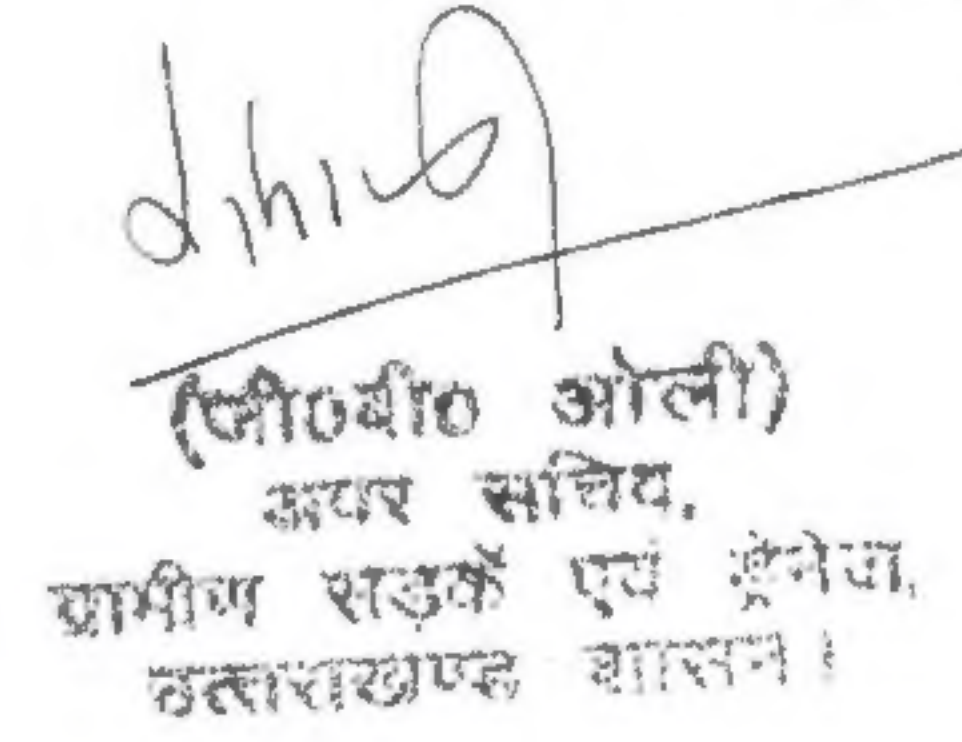 (जी०बी० ओली)
अवर सचिव,
ग्रामीण सड़कें एवं ड्रेनेज,
उत्तराखण्ड शासन।